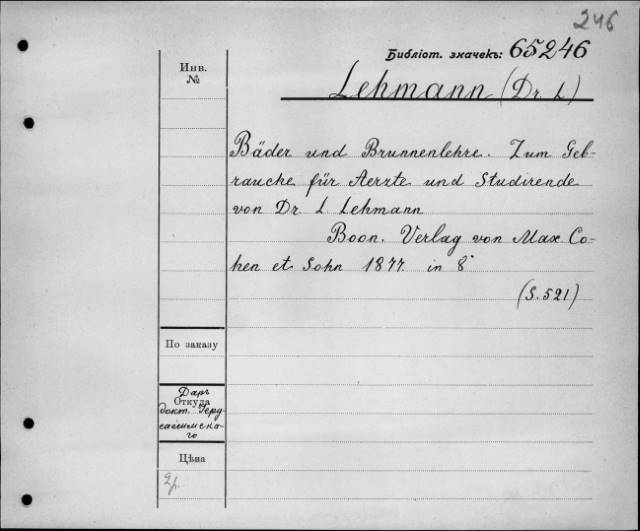 246
Библіот. значекъ: 65246
Инв.
№
Lehmann (Dr. L)
Bäder und Brunnenlehre. Zum Geb-
rauche für Aerzte und Studirende
von Dr. L. Lehmann
Boon. Verlag von Max. Co-
hen et Sohn 1877. in 8°
(S. 521)
По заказу
Даръ
Откуда
докт. Іеру-
салимска-
го
Цѣна
2р.